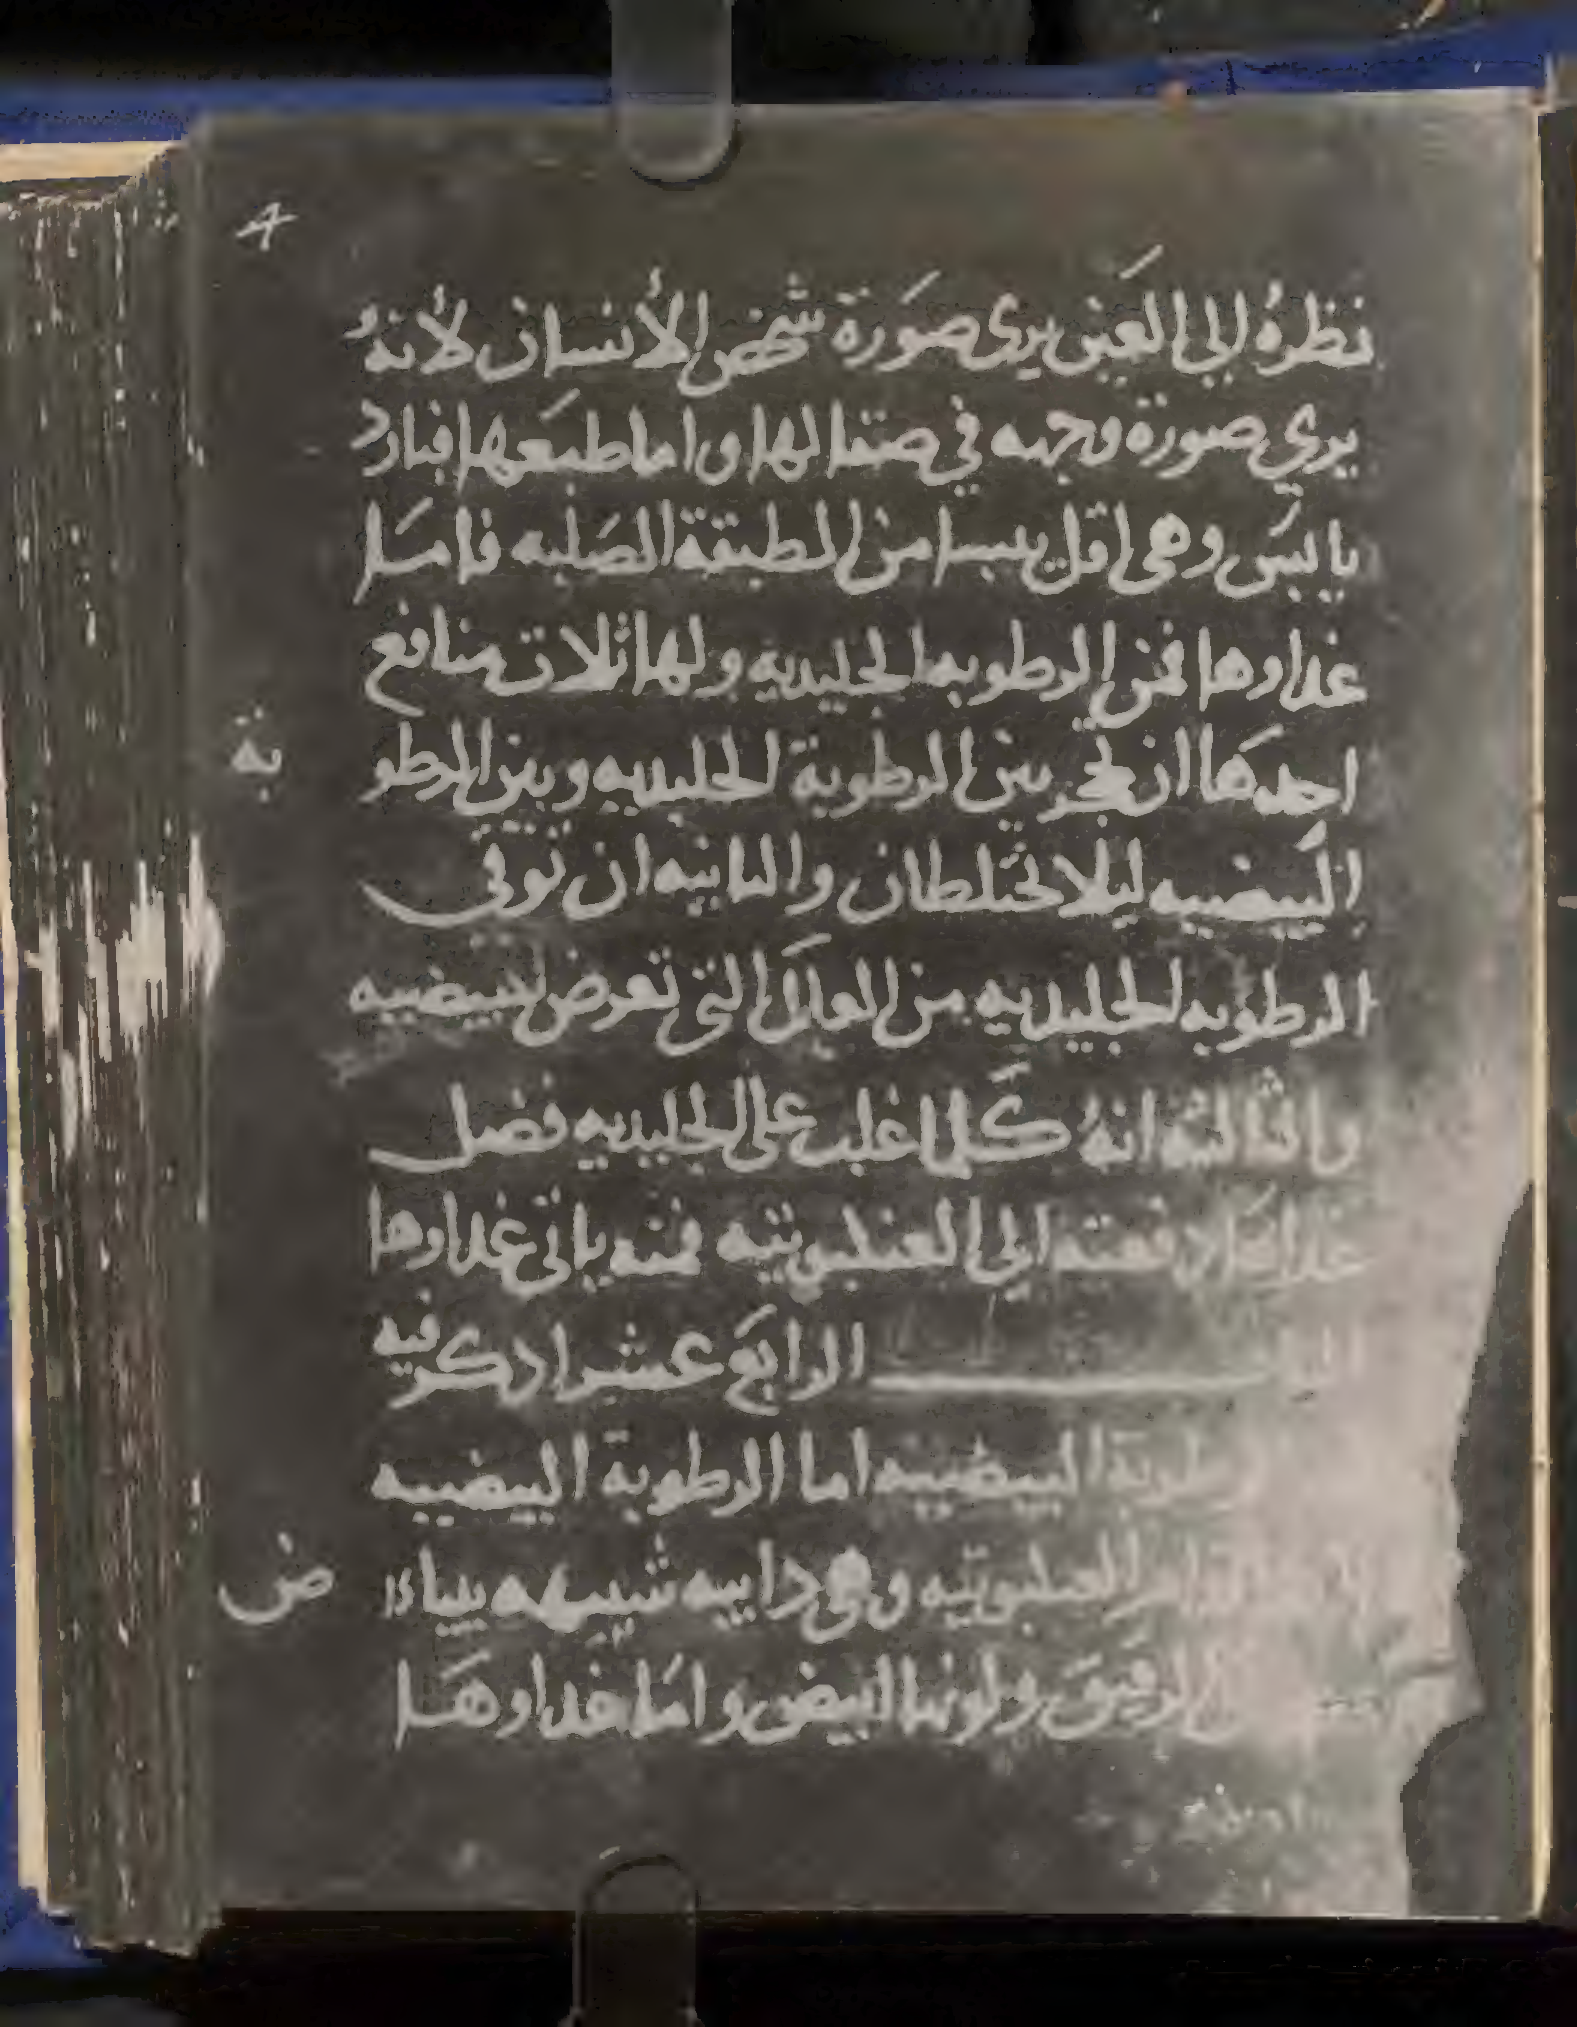 نظرهُ الي العَين يري صَورة شخص الأنسان لأنهُ
يري صورة وجهه في صقالها واما طبَعها فبارد
يابسَ وهي اقل يبسا من الطبقة الصَلبه فامَا
غداوها فمن الرطوبه الجليديه ولها ثلات منافع
احدَها ان تحجز بين الرطوبة الجليديه وبين الرطو
به
البَيضيه ليلا تختلطان والثانيه ان توقي
الرطوبه الجليديه من العلل التي تعرض للبيضيه
والثالثه انهُ كَلما غلب علي الجليديه فضل
غدا دفعته الي العنكبوتيه فمنه ياتي غداوها
الرابَع عشر ادكر فيه
الرطوبة البيضيه اما الرطوبة البيضيه
العنكبوتيه وهي دايبه شبيهه ببياض
الرقيقَ ولونها ابيض وامَا غداوهَا